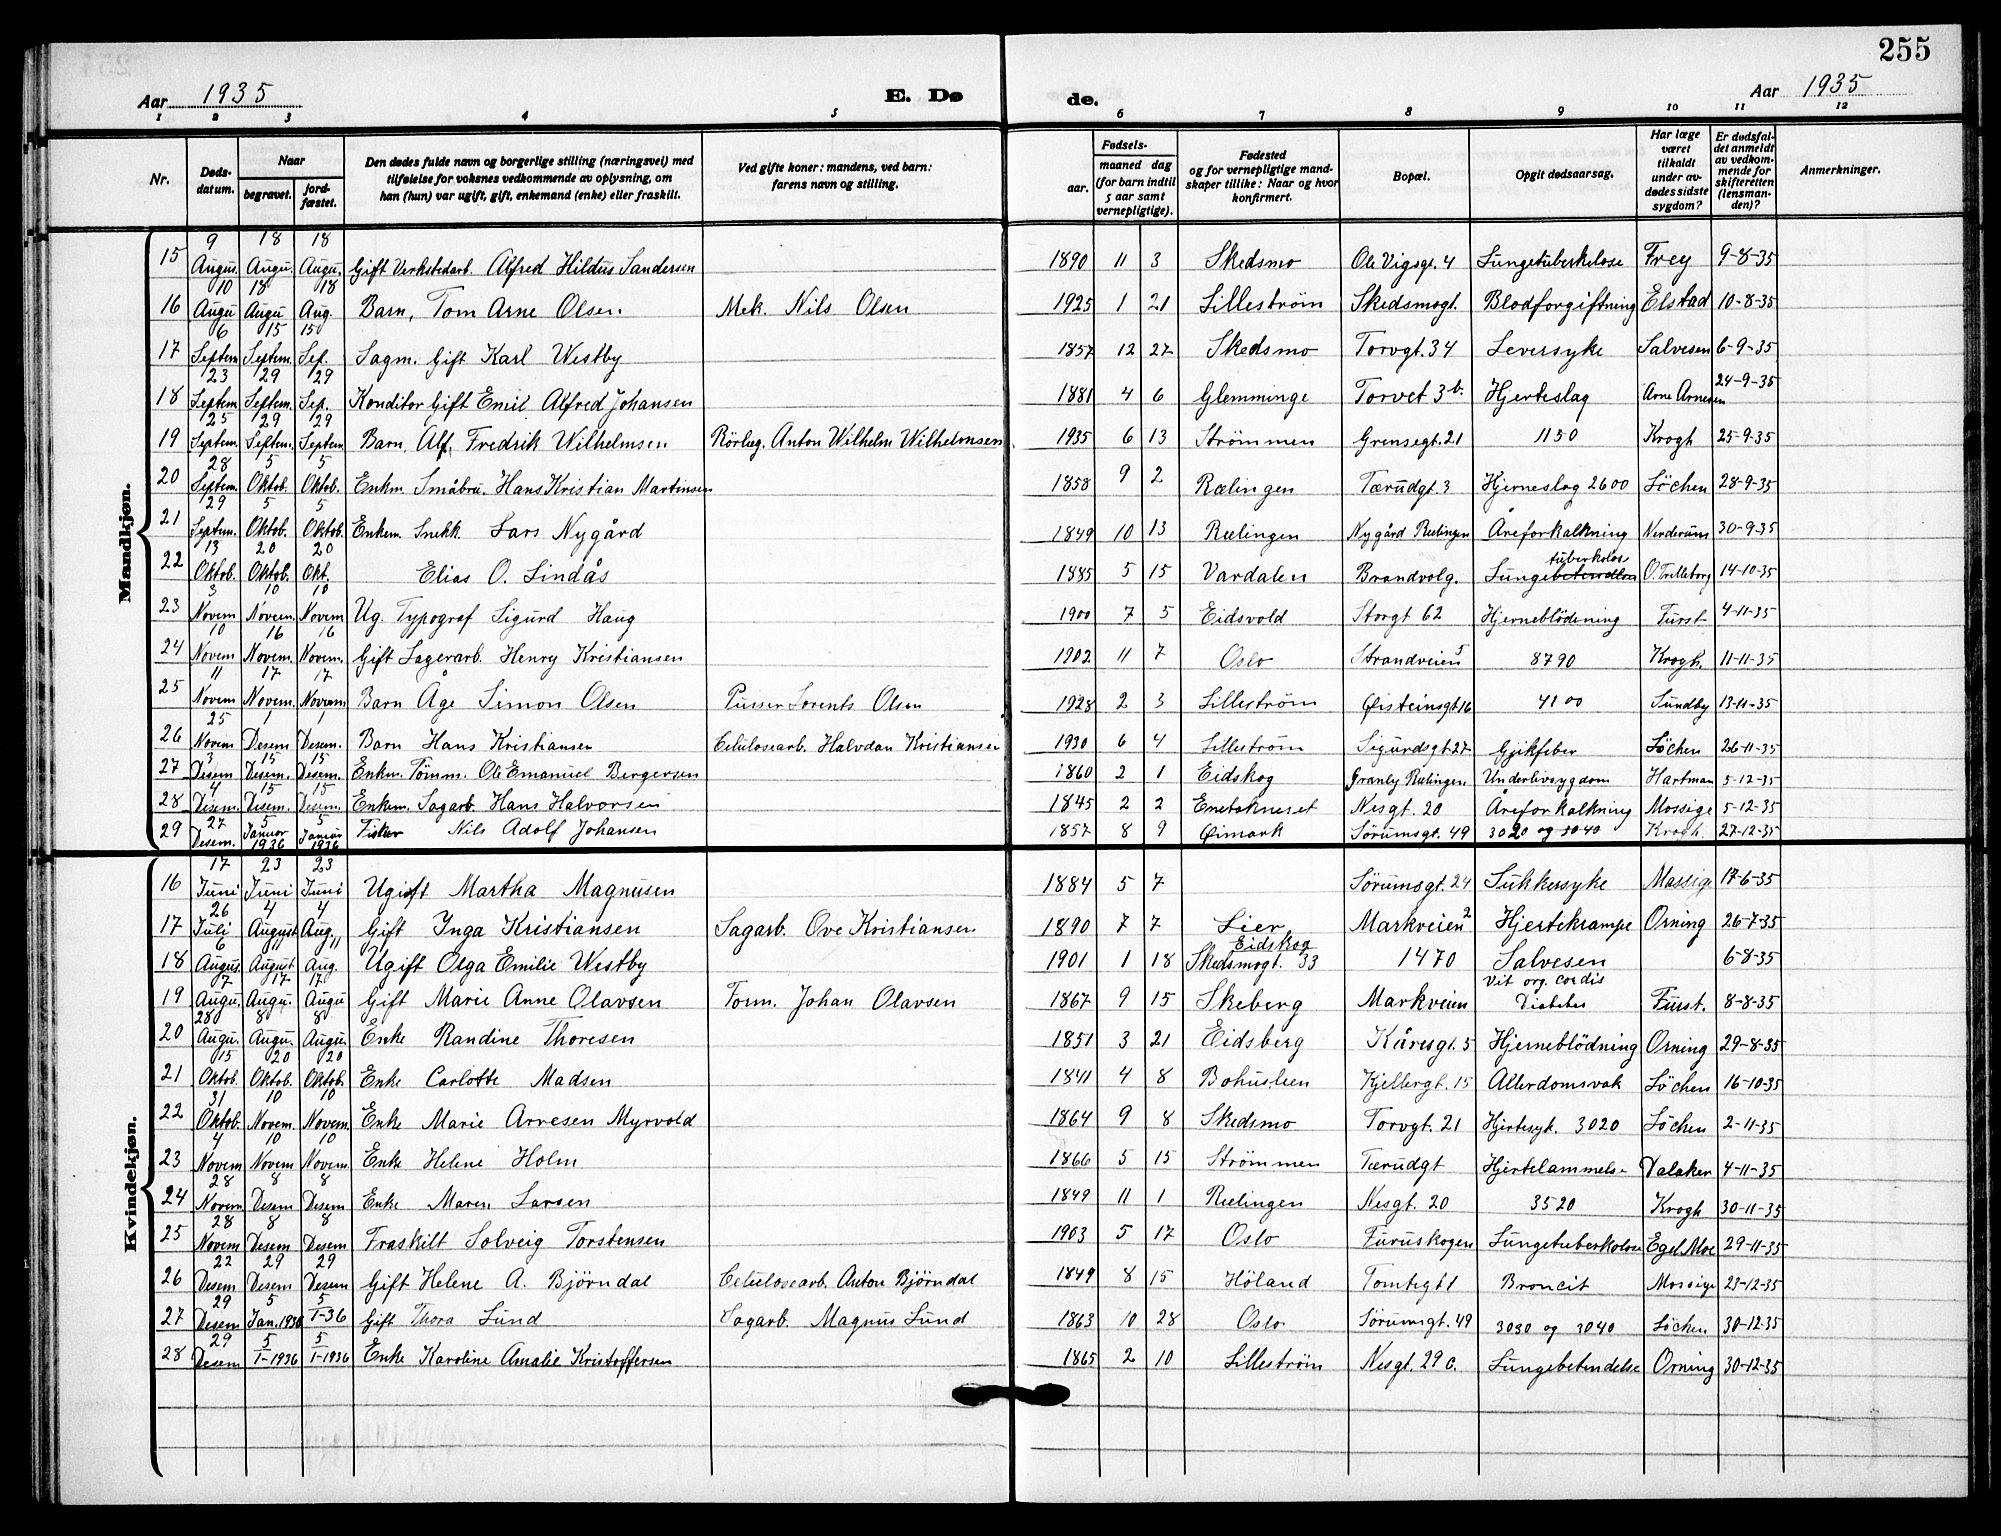 255
Aar 1935 E. Dø de. Aar 1935
1 2 3 4 5 6 7 8 9 10 11 12
Nr. Døds-datum. Naar begravet. jord-fæstet. Den dødes fulde navn og borgerlige stilling (næringsvei) med tilføielse for voksnes vedkommende av oplysning, om han (hun) var ugift, gift, enkemand (enke) eller fraskilt. Ved gifte koner: mandens, ved barn: farens navn og stilling. Fødsels- aar. maaned dag (for barn indtil 5 aar samt vernepligtige). Fødested og for vernepligtige mandskaper tillike: Naar og hvor konfirmert. Bopæl. Opgit dødsaarsag. Har læge været tilkaldt under avdødes sidste sygdom? Er dødsfaldet anmeldt av vedkommende for skifteretten (lensmanden)? Anmerkninger.
Mandkjøn.
15 9 Augus. 18 Augu. 18 Augu. Gift Verkstedarb. Alfred Hildus Sandersen 1890 11 3 Skedsmo Ole Vigsgt. 4 Lungetuberkelose Frey 9-8-35
16 10 Augu 18 Augu 18 Aug. Barn, Tom Arne Olsen. Mek. Nils Olsen 1925 1 21 Lillestrøm Skedsmogt. Blodforgiftning Elstad 10-8-35
17 6 Septem 15 Septem. 15 Sep. Sagm. Gift Karl Westby 1857 12 27 Skedsmo Torvgt. 34 Leversyke Salvesen 6-9-35
18 23 Septem 29 Septem. 29 Sep. Konditor Gift Emil Alfred Johansen 1881 4 6 Glemminge Torvet 3 b. Hjerteslag Arne Arnesen 24-9-35
19 25 Septem. 29 Septem. 29 Septem Barn, Alf, Fredrik Wilhelmsen Rörleg. Anton Wilhelm Wilhelmsen 1935 6 13 Strömmen Grensegt. 21 1150 Krogh 25-9-35
20 28 Septem. 5 Oktob. 5 Oktob. Enkm. Småbru. Hans Kristian Martinsen 1858 9 2 Rælingen Tærudgt. 3 Hjerneslag 2600 Löchen 28-9-35
21 29 Septem. 5 Oktob. 5 Oktob. Enkem. Snekk. Lars Nygård 1849 10 13 Rælingen Nygård Rælingen Åreforkalkning Nerderum 30-9-35
22 13 Oktob. 20 Oktob. 20 Okt. Elias O. Lindås 1885 5 15 Vardalen Brandvolg. Lungebetendelse tuberkolos O. Trilleborg 14-10-35
23 3 Novem 10 Novem. 10 Novem Ug. Typograf Sigurd Haug 1900 7 5 Eidsvold Storgt 62 Hjerneblödning Furst 4-11-35
24 10 Novem 16 Novem. 16 Novem. Gift Lagerarb. Henry Kristiansen 1902 11 7 Oslo Strandveien 5 8790 Krogh. 11-11-35
25 11 Novem 17 Novem. 17 Novem Barn Åge Simon Olsen Pusser Lorents Olsen 1928 2 3 Lillestrøm Øisteinsgt 16 4100 Sundby 13-11-35
26 25 Novem 1 Desem 1 Desem. Barn Hans Kristiansen Celulosearb. Halvdan Kristiansen 1930 6 4 Lillestrøm Sigurdsgt 27 Gjikfeber Löchen 26-11-35
27 3 Desem 15 Desem. 15 Desem. Enkm. Tömm. Ole Emanuel Bergersen 1860 2 1 Eidskog Granly Rælingen Underlivsygdom Hartman 5-12-35
28 4 Desem. 15 Desem. 15 Desem. Enkem. Sagarb. Hans Halvorsen 1845 2 2 Enebakneset Nesgt. 20 Åreforkalkning Mossige 5-12-35
29 27 Desem. 5 Januar 1936 5 Januar 1936 Fisker Nils Adolf Johansen 1857 8 9 Øimark Sørumsgt. 49 3020 og 3040 Krogh. 27-12-35
Kvindekjøn.
16 17 Juni 23 Juni 23 Juni Ugift Martha Magnusen 1884 5 7 Sørumsgt. 24 Sukkersyke Mossige 17-6-35
17 26 Juli 4 August 4 Aug. Gift Inga Kristiansen Sagarb. Ove Kristiansen 1890 7 7 Lier Markveien 2 Hjertekrampe Orning 26-7-35
18 6 Augus. 11 August 11 Aug. Ugift Olga Emilie Westby 1901 1 18 Eidskog Skedsmogt. 33 1470 Salvesen 6-8-35
19 7 Augu. 17 Augu. 17 Augu Gift Marie Anne Olavsen Form. Johan Olavsen 1867 9 15 Skeberg Markveien Vit org. cordis Diabetes Furst. 8-8-35
20 28 Augu. 8 Augu. 8 Augu. Enke Randine Thoresen 1851 3 21 Eidsberg Kåresgt. 5 Hjerneblödning Orning 29-8-35
21 15 Oktob. 20 Oktob. 20 Oktob. Enke Carlotte Madsen 1841 4 8 Bohuslen Kjellergt. 15 Alderdomsvak Löchen 16-10-35
22 31 Oktob. 10 Novem. 10 Novem. Enke Marie Arnesen Myrvold 1864 9 8 Skedsmo Torvgt. 21 Hjertesyk. 3020 Löchen 2-11-35
23 4 Novem 10 Novem 10 Novem. Enke Helene Holm 1866 5 15 Strömmen Tærudgt Hjertelammelse Dalaker 4-11-35
24 28 Novem 8 Desem 8 Desem Enke Maren Larsen 1849 11 1 Rælingen Nesgt. 20 3520 Krogh 30-11-35
25 28 Novem 8 Desem 8 Desem Fraskilt Solveig Torstensen 1903 5 17 Oslo Furuskogen Lungetuberkolose Egel Moe 29-11-35
26 22 Desem 29 Desem 29 Desem Gift Helene A. Björndal Celulosearb. Anton Björndal 1849 8 15 Höland Tomtegt 1 Broncit Mossige 23-12-35
27 29 Desem 5 Jan. 1936 5 1-36 Gift Thora Lund Sagarb. Magnus Lund 1863 10 28 Oslo Sørumsgt. 49 3030 og 3040 Löchen 30-12-35
28 29 Desem 5 1-1936 5 1-1936 Enke Karoline Amalie Kristoffersen 1865 2 10 Lillestrøm Nesgt. 29 c. Lungebetendelse Orning 30-12-35